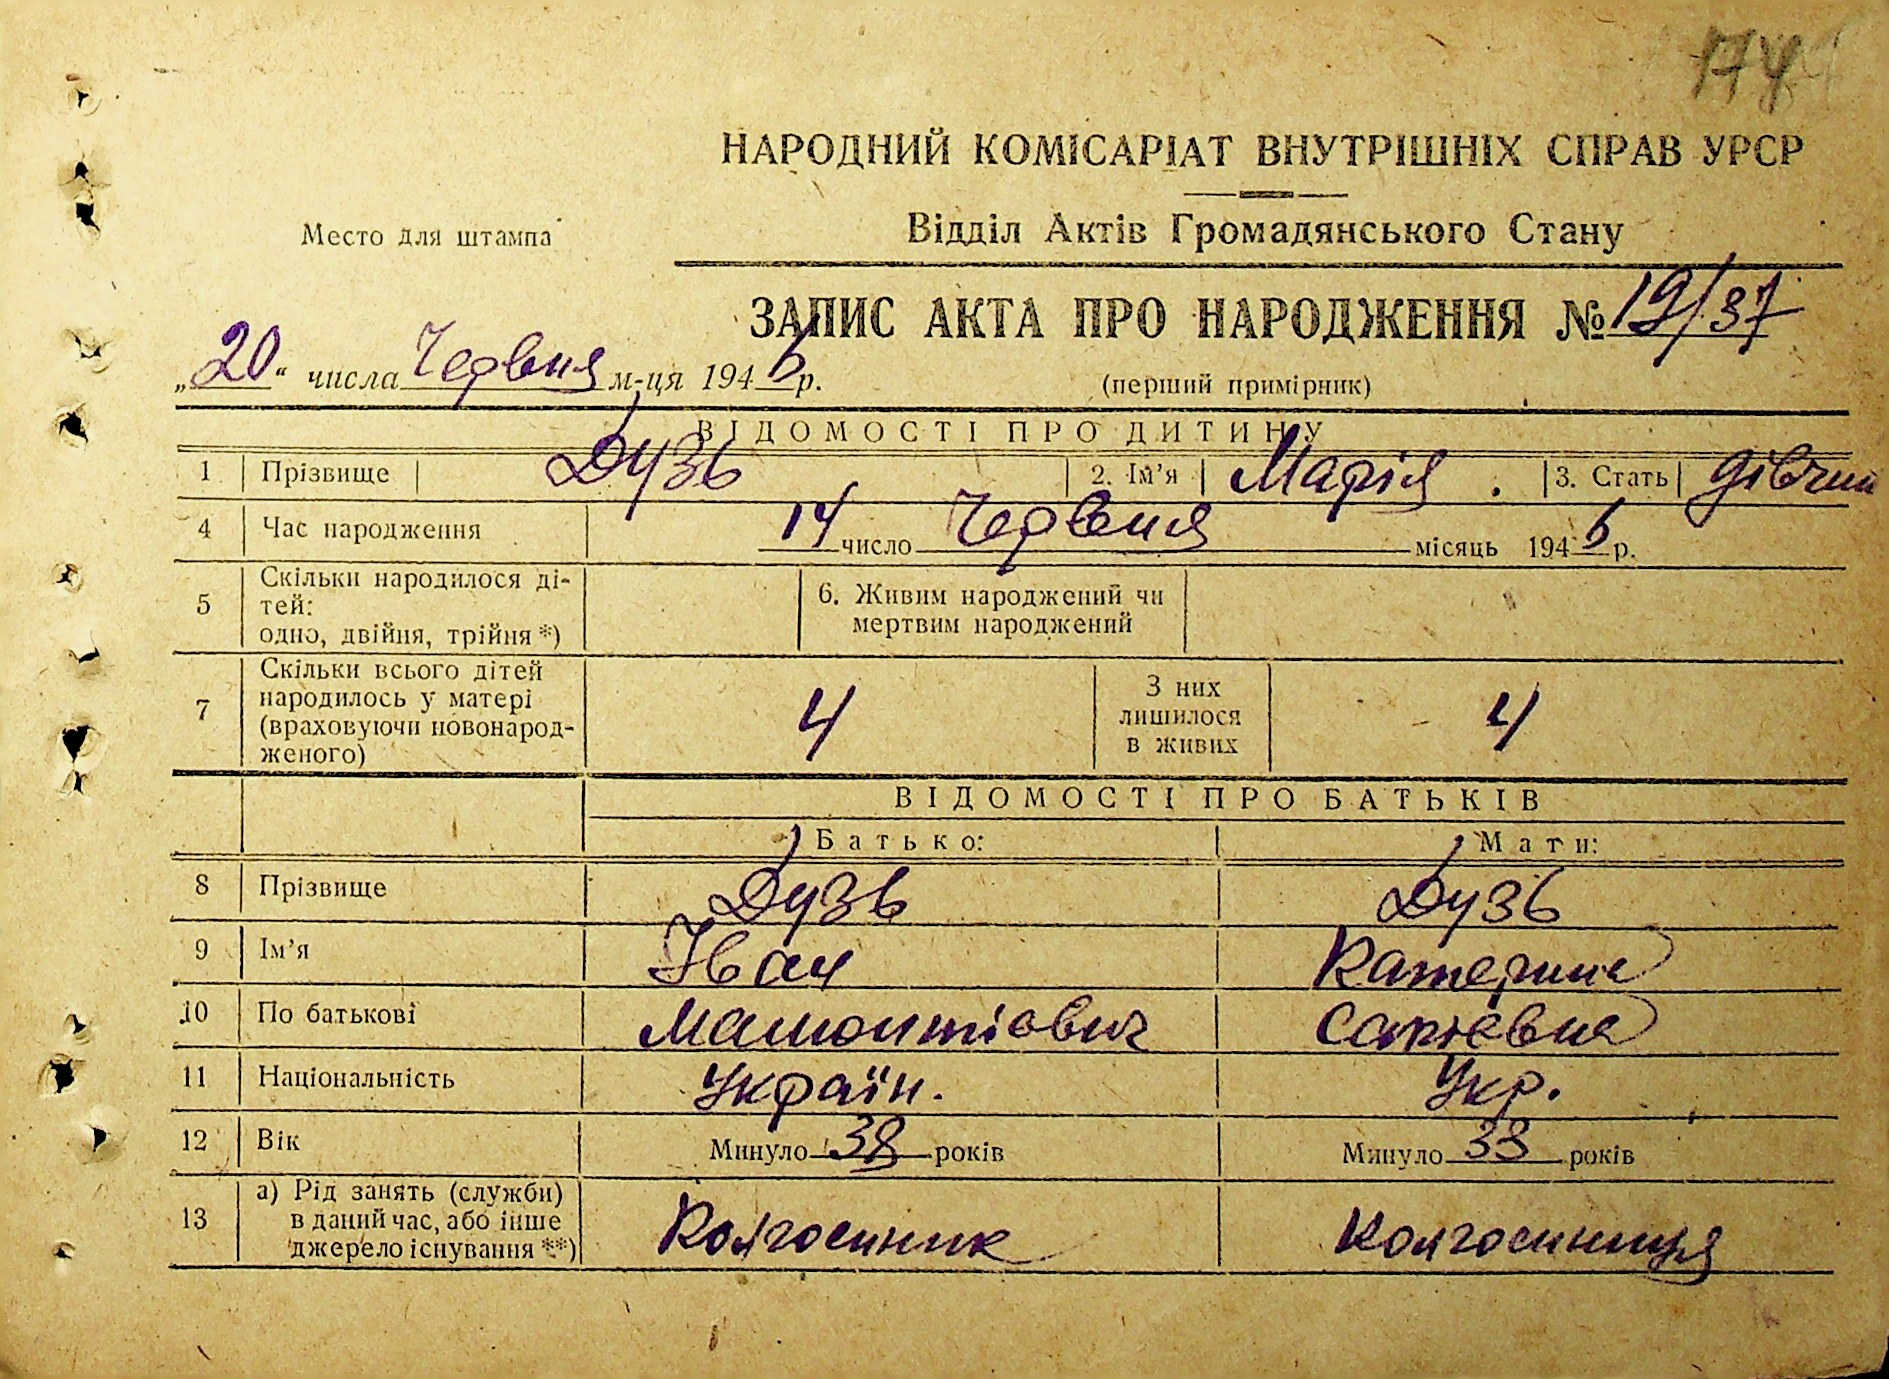 174
НАРОДНИЙ КОМІСАРІАТ ВНУТРІШНІХ СПРАВ УРСР
Место для штампа
Відділ Актів Громадянського Стану
ЗАПИС АКТА ПРО НАРОДЖЕННЯ № 19/37
„20“ числа Червня м-ця 1946 р.
(перший примірник)
ВІДОМОСТІ ПРО ДИТИНУ
1 Прізвище Дузь 2. Ім’я Марія. 3. Стать дівчин
4 Час народження 14 число Червня місяць 1946 р.
5 Скільки народилося ді-
тей:
одно, двійня, трійня *)
6. Живим народжений чи
мертвим народжений
7 Скільки всього дітей
народилось у матері
(враховуючи новонарод-
женого)
4
З них
лишилося
в живих
4
ВІДОМОСТІ ПРО БАТЬКІВ
Батько: Мати:
8 Прізвище Дузь Дузь
9 Ім’я Іван Катерина
10 По батькові Мамонтіович
11 Національність Україн. Укр.
12 Вік Минуло 38 років Минуло 33 років
13 а) Рід занять (служби)
в даний час, або інше
джерело існування **)
Колгоспник Колгоспниця